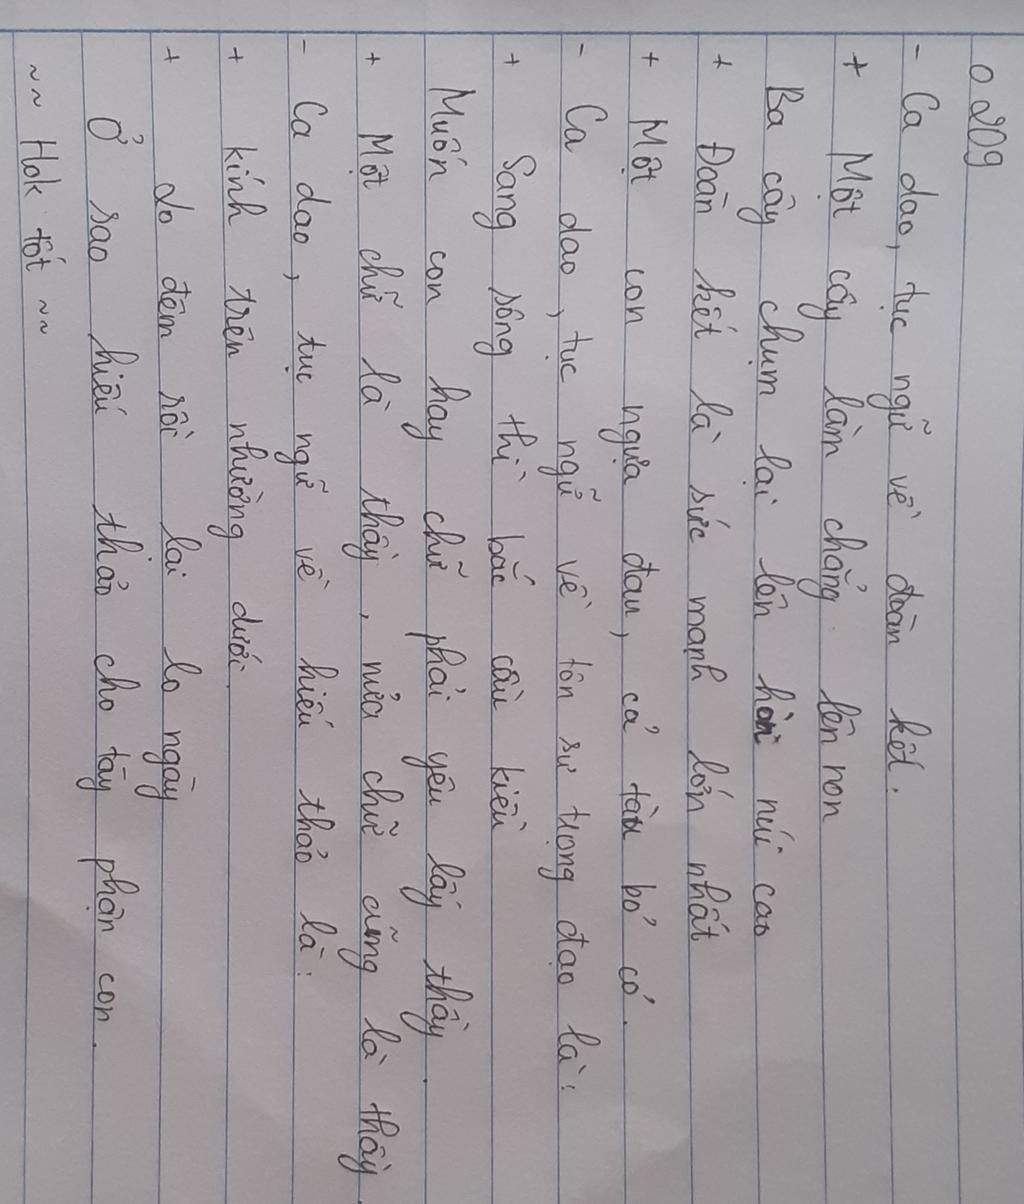 0209
- Ca dao, tục ngữ về đoàn kết.
+ Một cây làm chẳng lên non
Ba cây chụm lại lên hòn núi cao
+ Đoàn kết là sức mạnh lớn nhất
+ Một con ngựa đau, cả tàu bỏ cỏ.
- Ca dao, tục ngữ về tôn sư trọng đạo là:
+ Sang sông thì bắc cầu kiều
Muốn con hay chữ phải yêu lấy thầy.
+ Một chữ là thầy, nửa chữ cũng là thầy.
- Ca dao, tục ngữ về hiếu thảo là:
+ kính trên nhường dưới.
+ Lo đêm rồi lại lo ngày
Ở sao hiếu thảo cho tày phận con.
~~ Hok tốt ~~